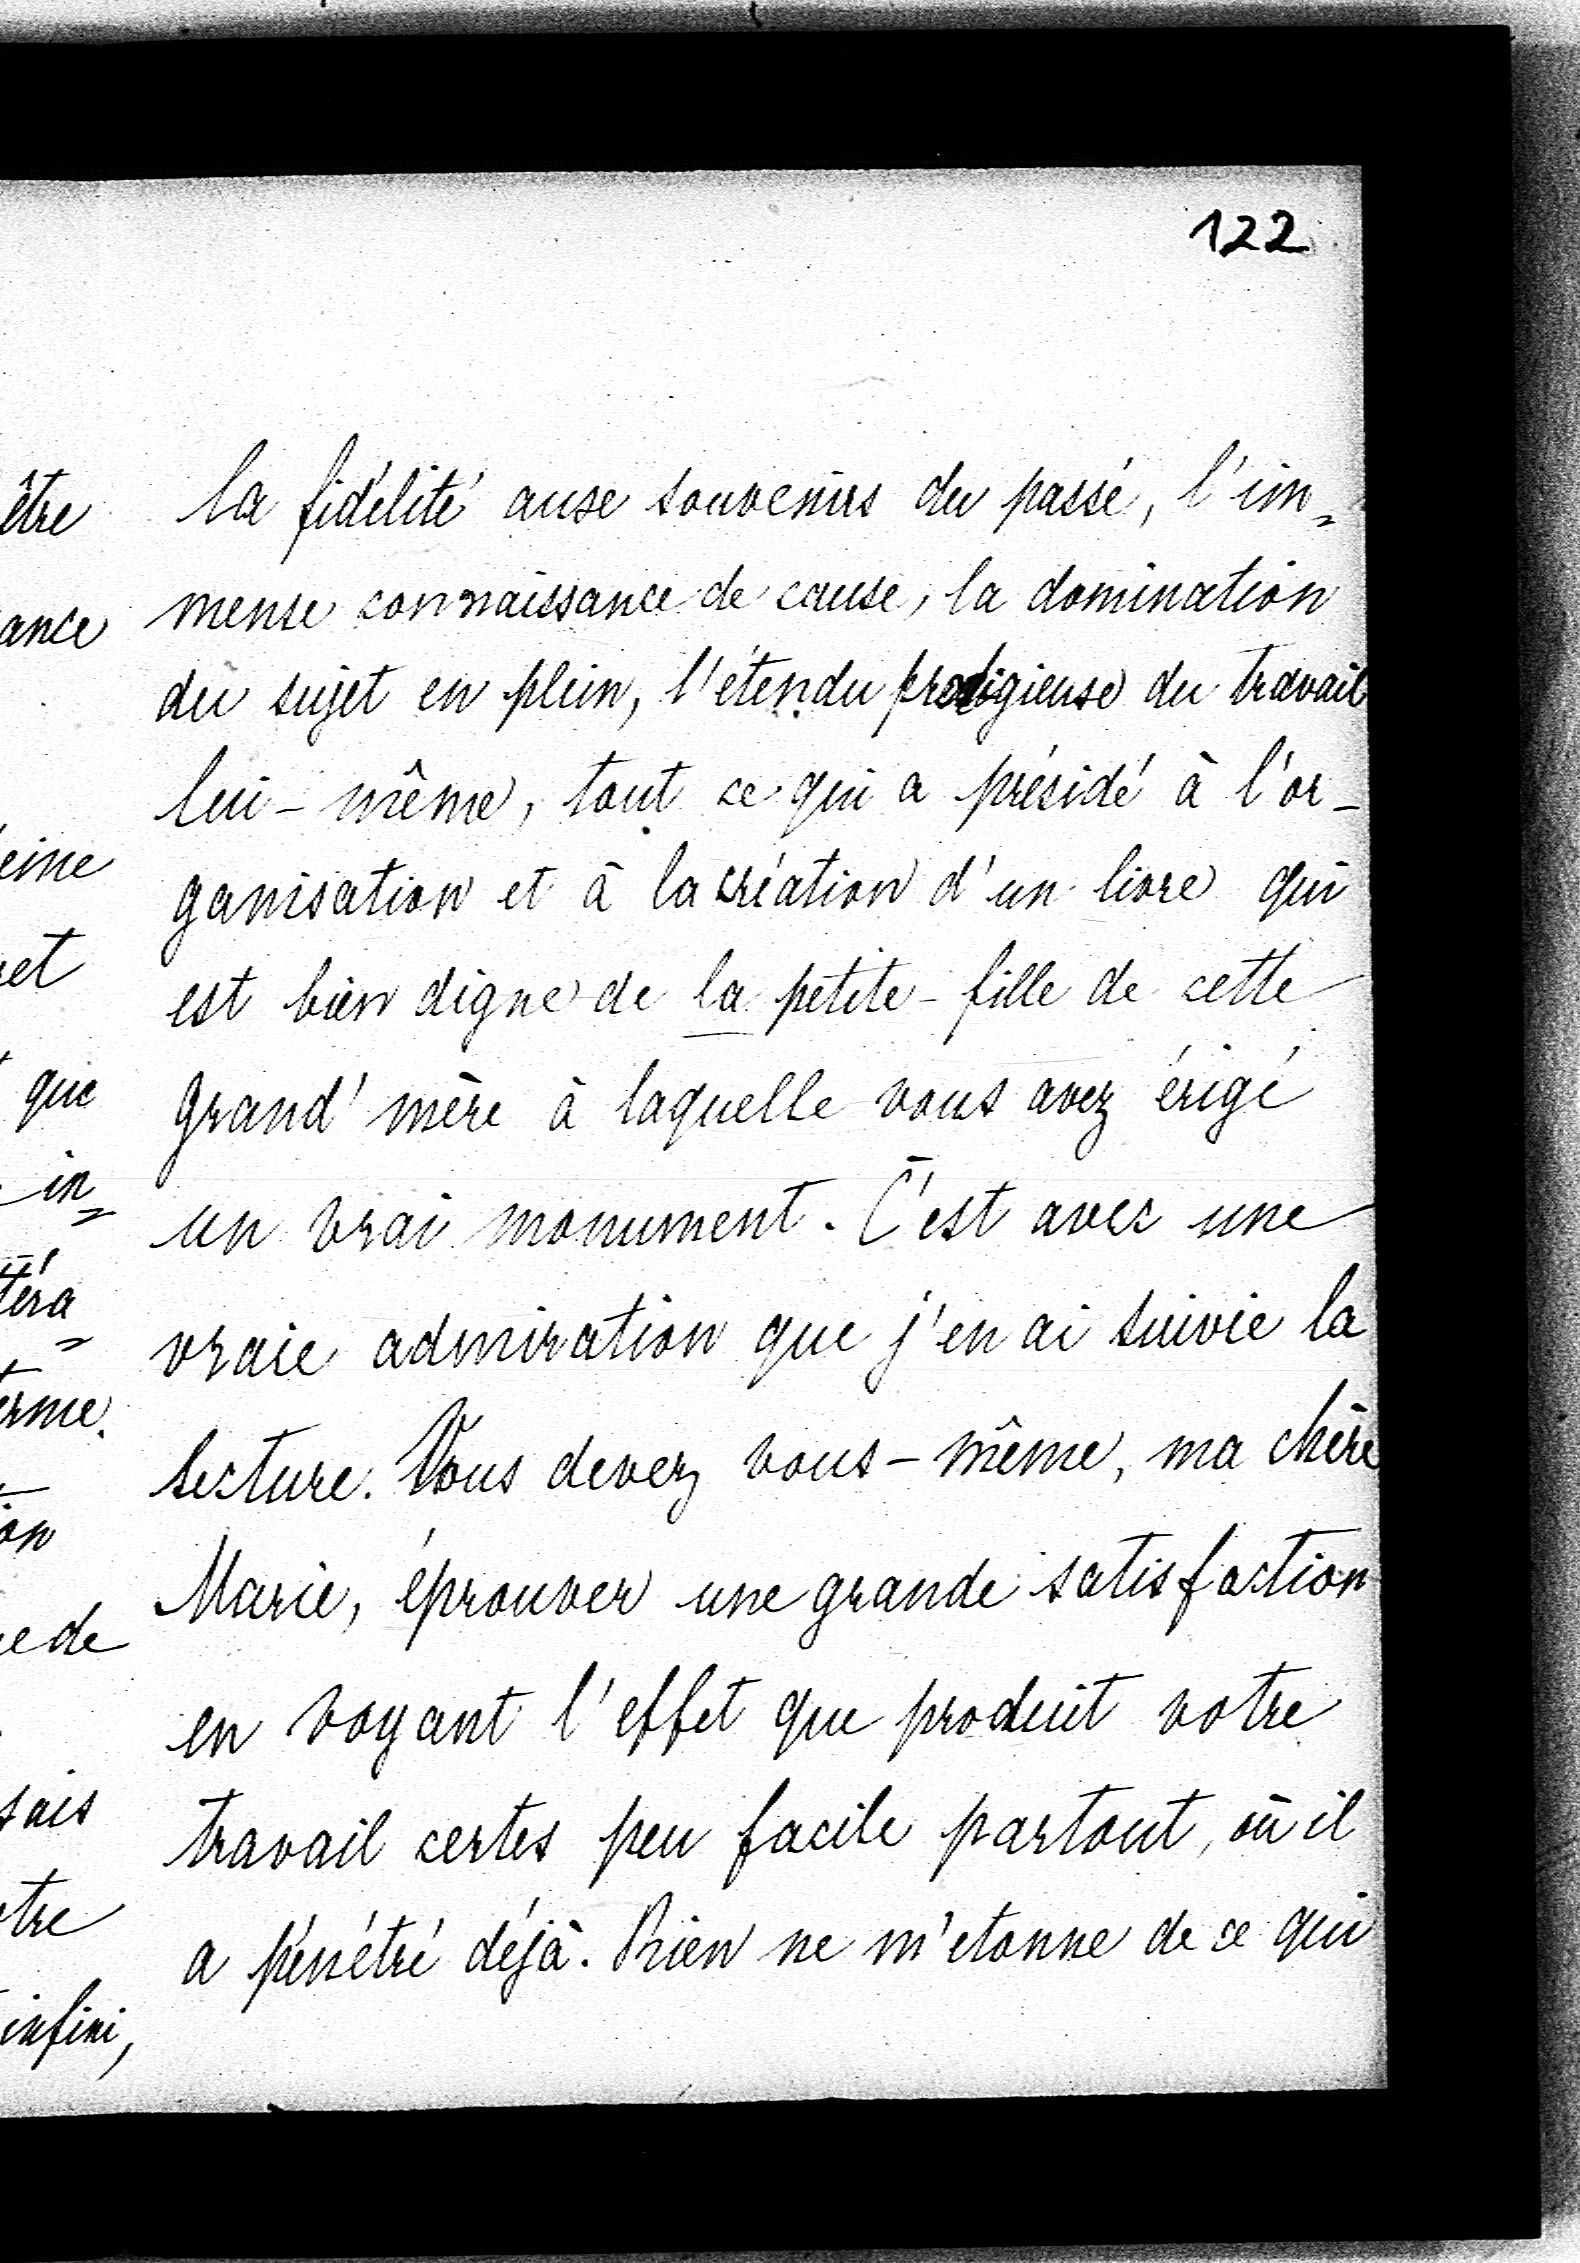 122
la fidélité aux souvenirs du passé, l'im„
mense connaissance de cause, la domination
du sujet en plein, l'étendu prodigieuse du travail
lui-même, tout ce qui a présidé à l'or-
ganisation et à la création d'un livre qui
est bien digne de la petite-fille de cette
Grand'mère à laquelle vous avez érigé
un vrai monument. C'est avec une
vraie admiration que j'en ai suivie la
lecture. Vous devez vous-même, ma chère
Marie, éprouver une grande satisfaction
en voyant l'effet que produit votre
travail certes peu facile partout, où il
a pénétré déjà. Rien ne m'etonne de ce qui
être
ance
eine
et
que
in„
téra„
erme.
on
e de
sais
tre
infini,